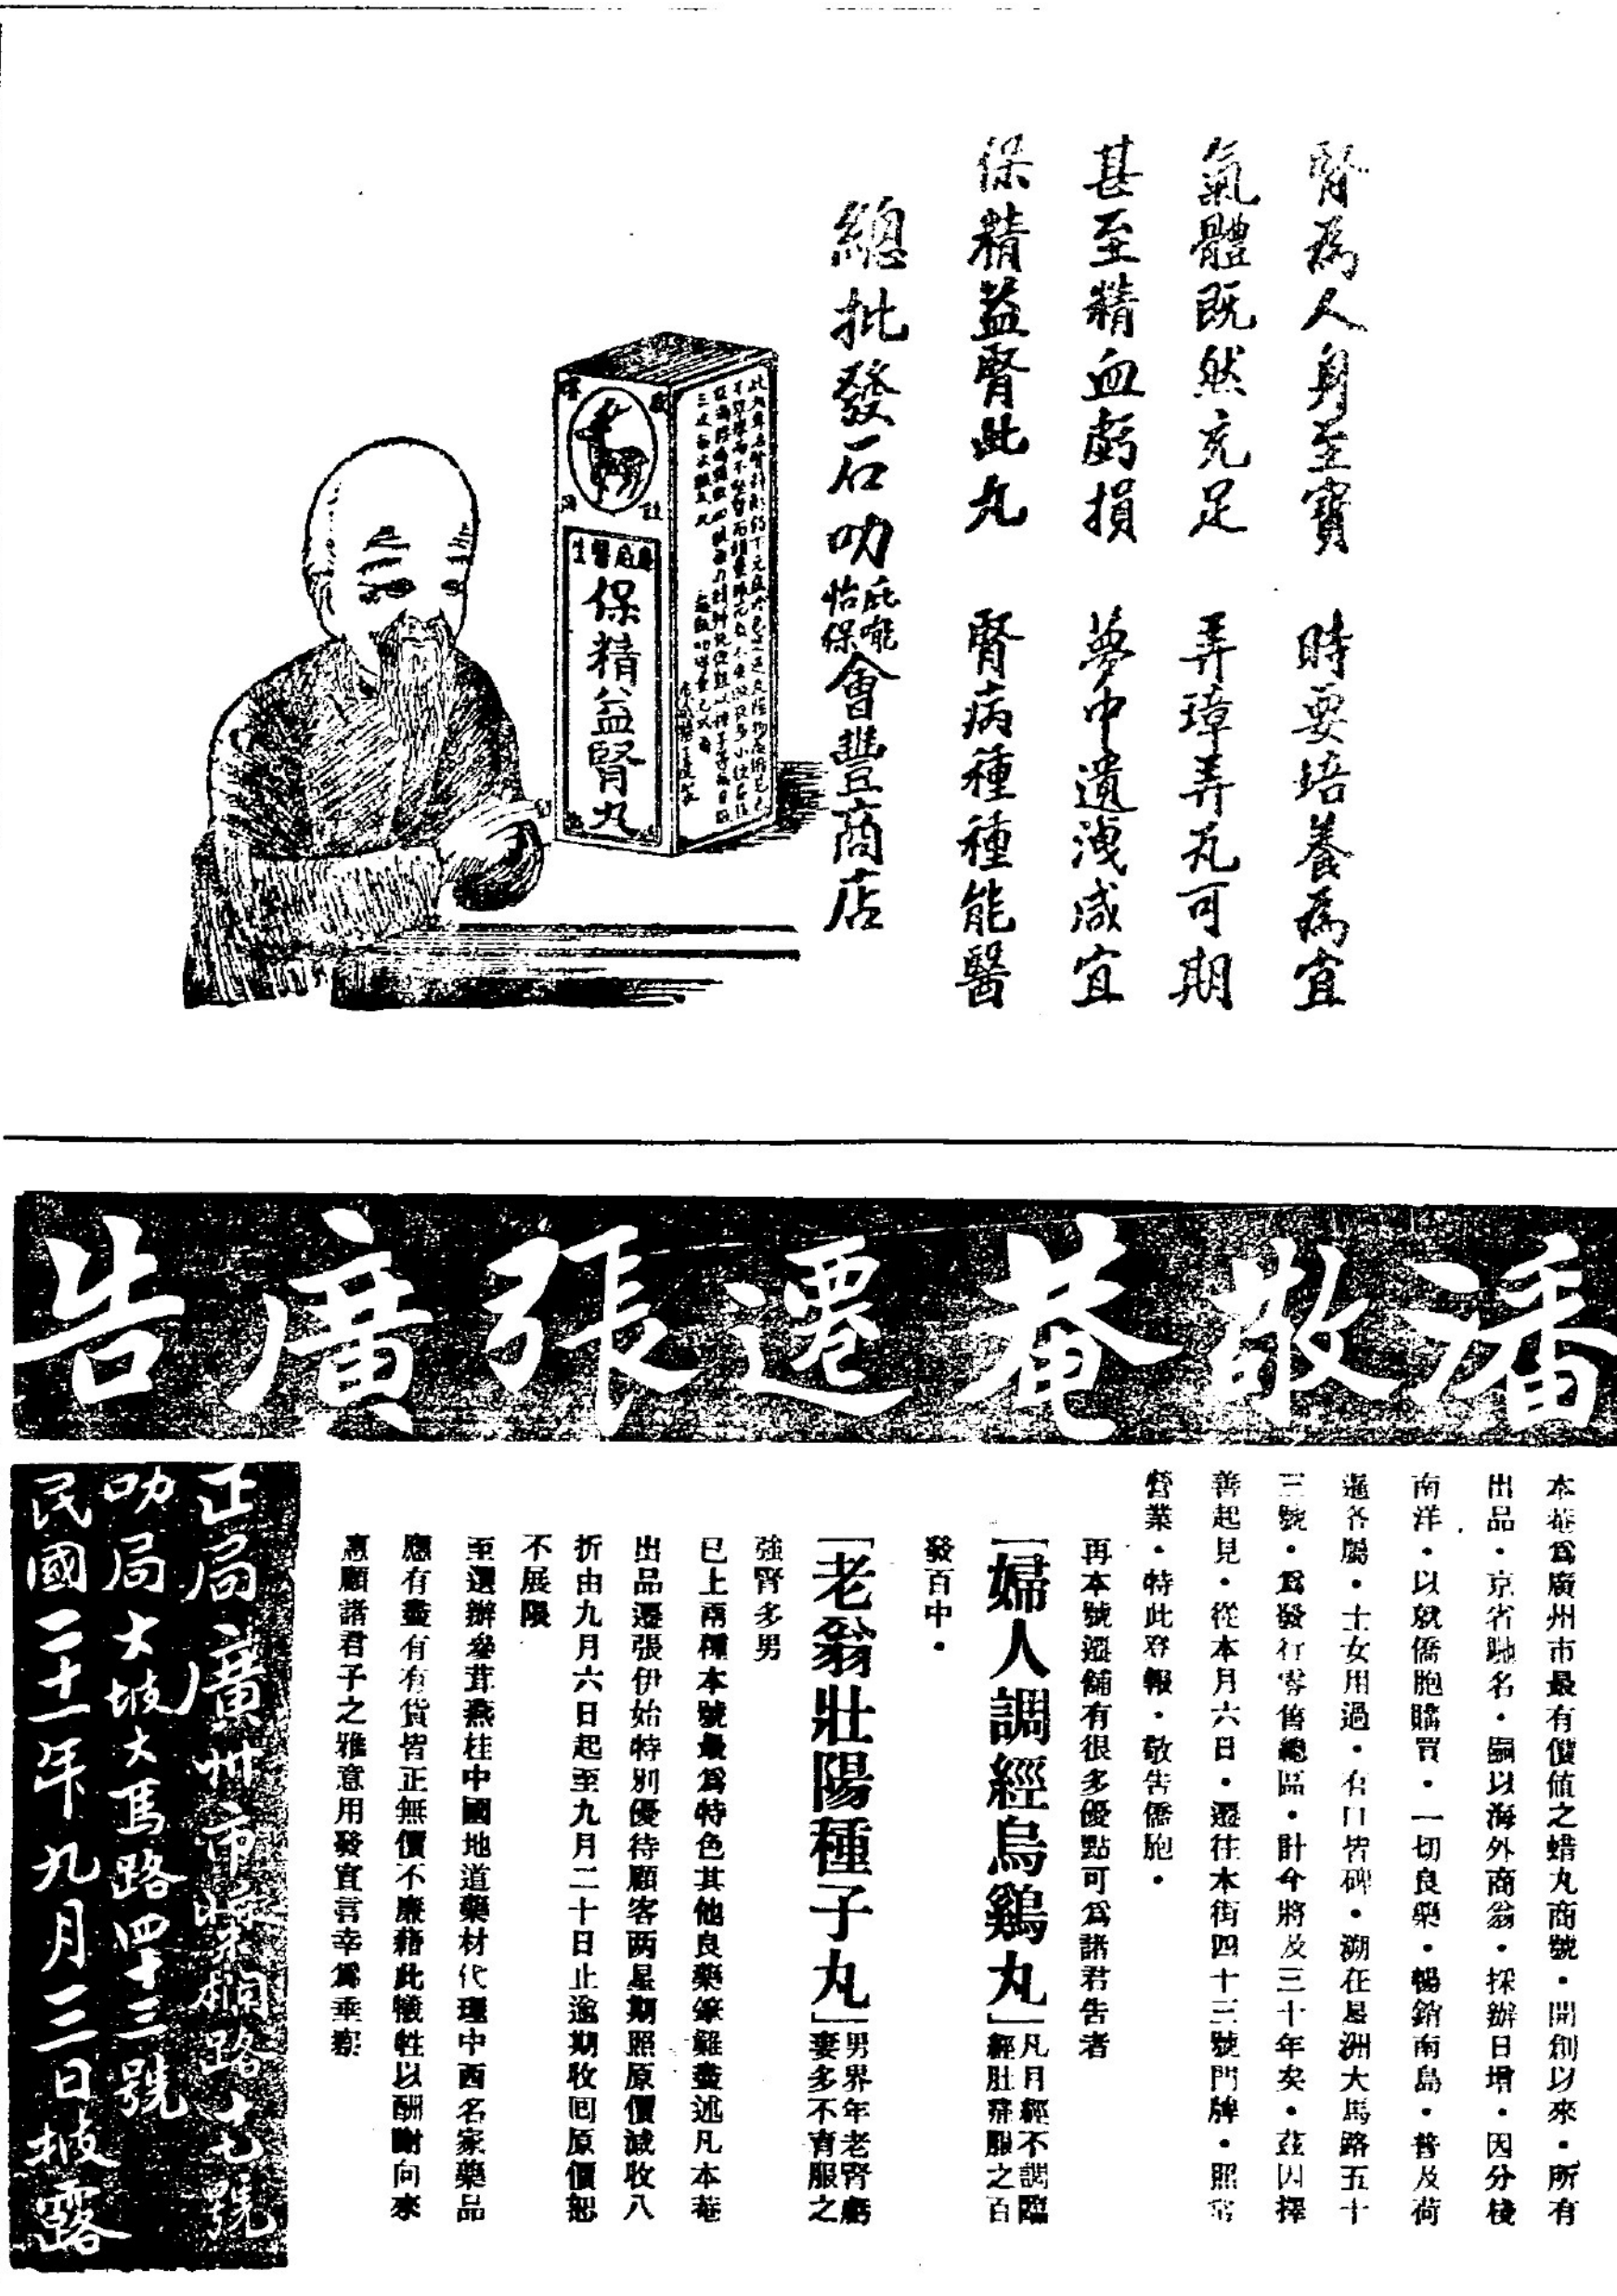 腎為人身至寶　時要培養為宜
氣體既然充足　弄璋弄瓦可期
甚至精血虧損　夢中遺洩咸宜
保精益腎此丸　腎病種種能醫
總批發石叻庇能怡保會豐商店
保精益腎丸
潘敬菴遷張廣告
本菴為廣州市最有價值之蜡丸商號・開創以來・所有
出品・京省馳名・嗣以海外商翁・採辦日增・因分棧
南洋・以就僑胞購買・一切良藥・暢銷南島・普及荷
暹各屬・士女用過・有口皆碑・溯在星洲大馬路五十
三號・為發行零售總區・計今將及三十年矣・茲因擇
善起見・從本月六日・遷往本街四十三號門牌・照常
營業・特此登報・敬告僑胞・
再本號遷舖有很多優點可為諸君告者
「婦人調經烏鷄丸」凡月經不調臨
經肚痛服之百
發百中・
「老翁壯陽種子丸」男界年老腎虧
妻多不育服之
強腎多男
已上兩種本號最為特色其他良藥筆難盡述凡本菴
出品遷張伊始特別優待顧客两星期照原價減收八
折由九月六日起至九月二十日止逾期收回原價恕
不展限
至選辦參茸燕桂中國地道藥材代理中西名家藥品
應有盡有有貨皆正無價不廉藉此犧牲以酬謝向來
惠顧諸君子之雅意用發宣言幸為垂察
正局廣州市漿欄路十七號
叻局大坡大馬路四十三號
民國二十一年九月三日披露